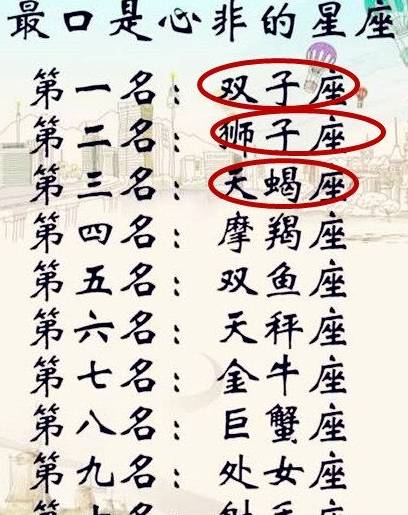 最口是心非的星座
第一名：双子座
第二名：狮子座
第三名：天蝎座
第四名：摩羯座
第五名：双鱼座
第六名：天秤座
第七名：金牛座
第八名：巨蟹座
第九名：处女座